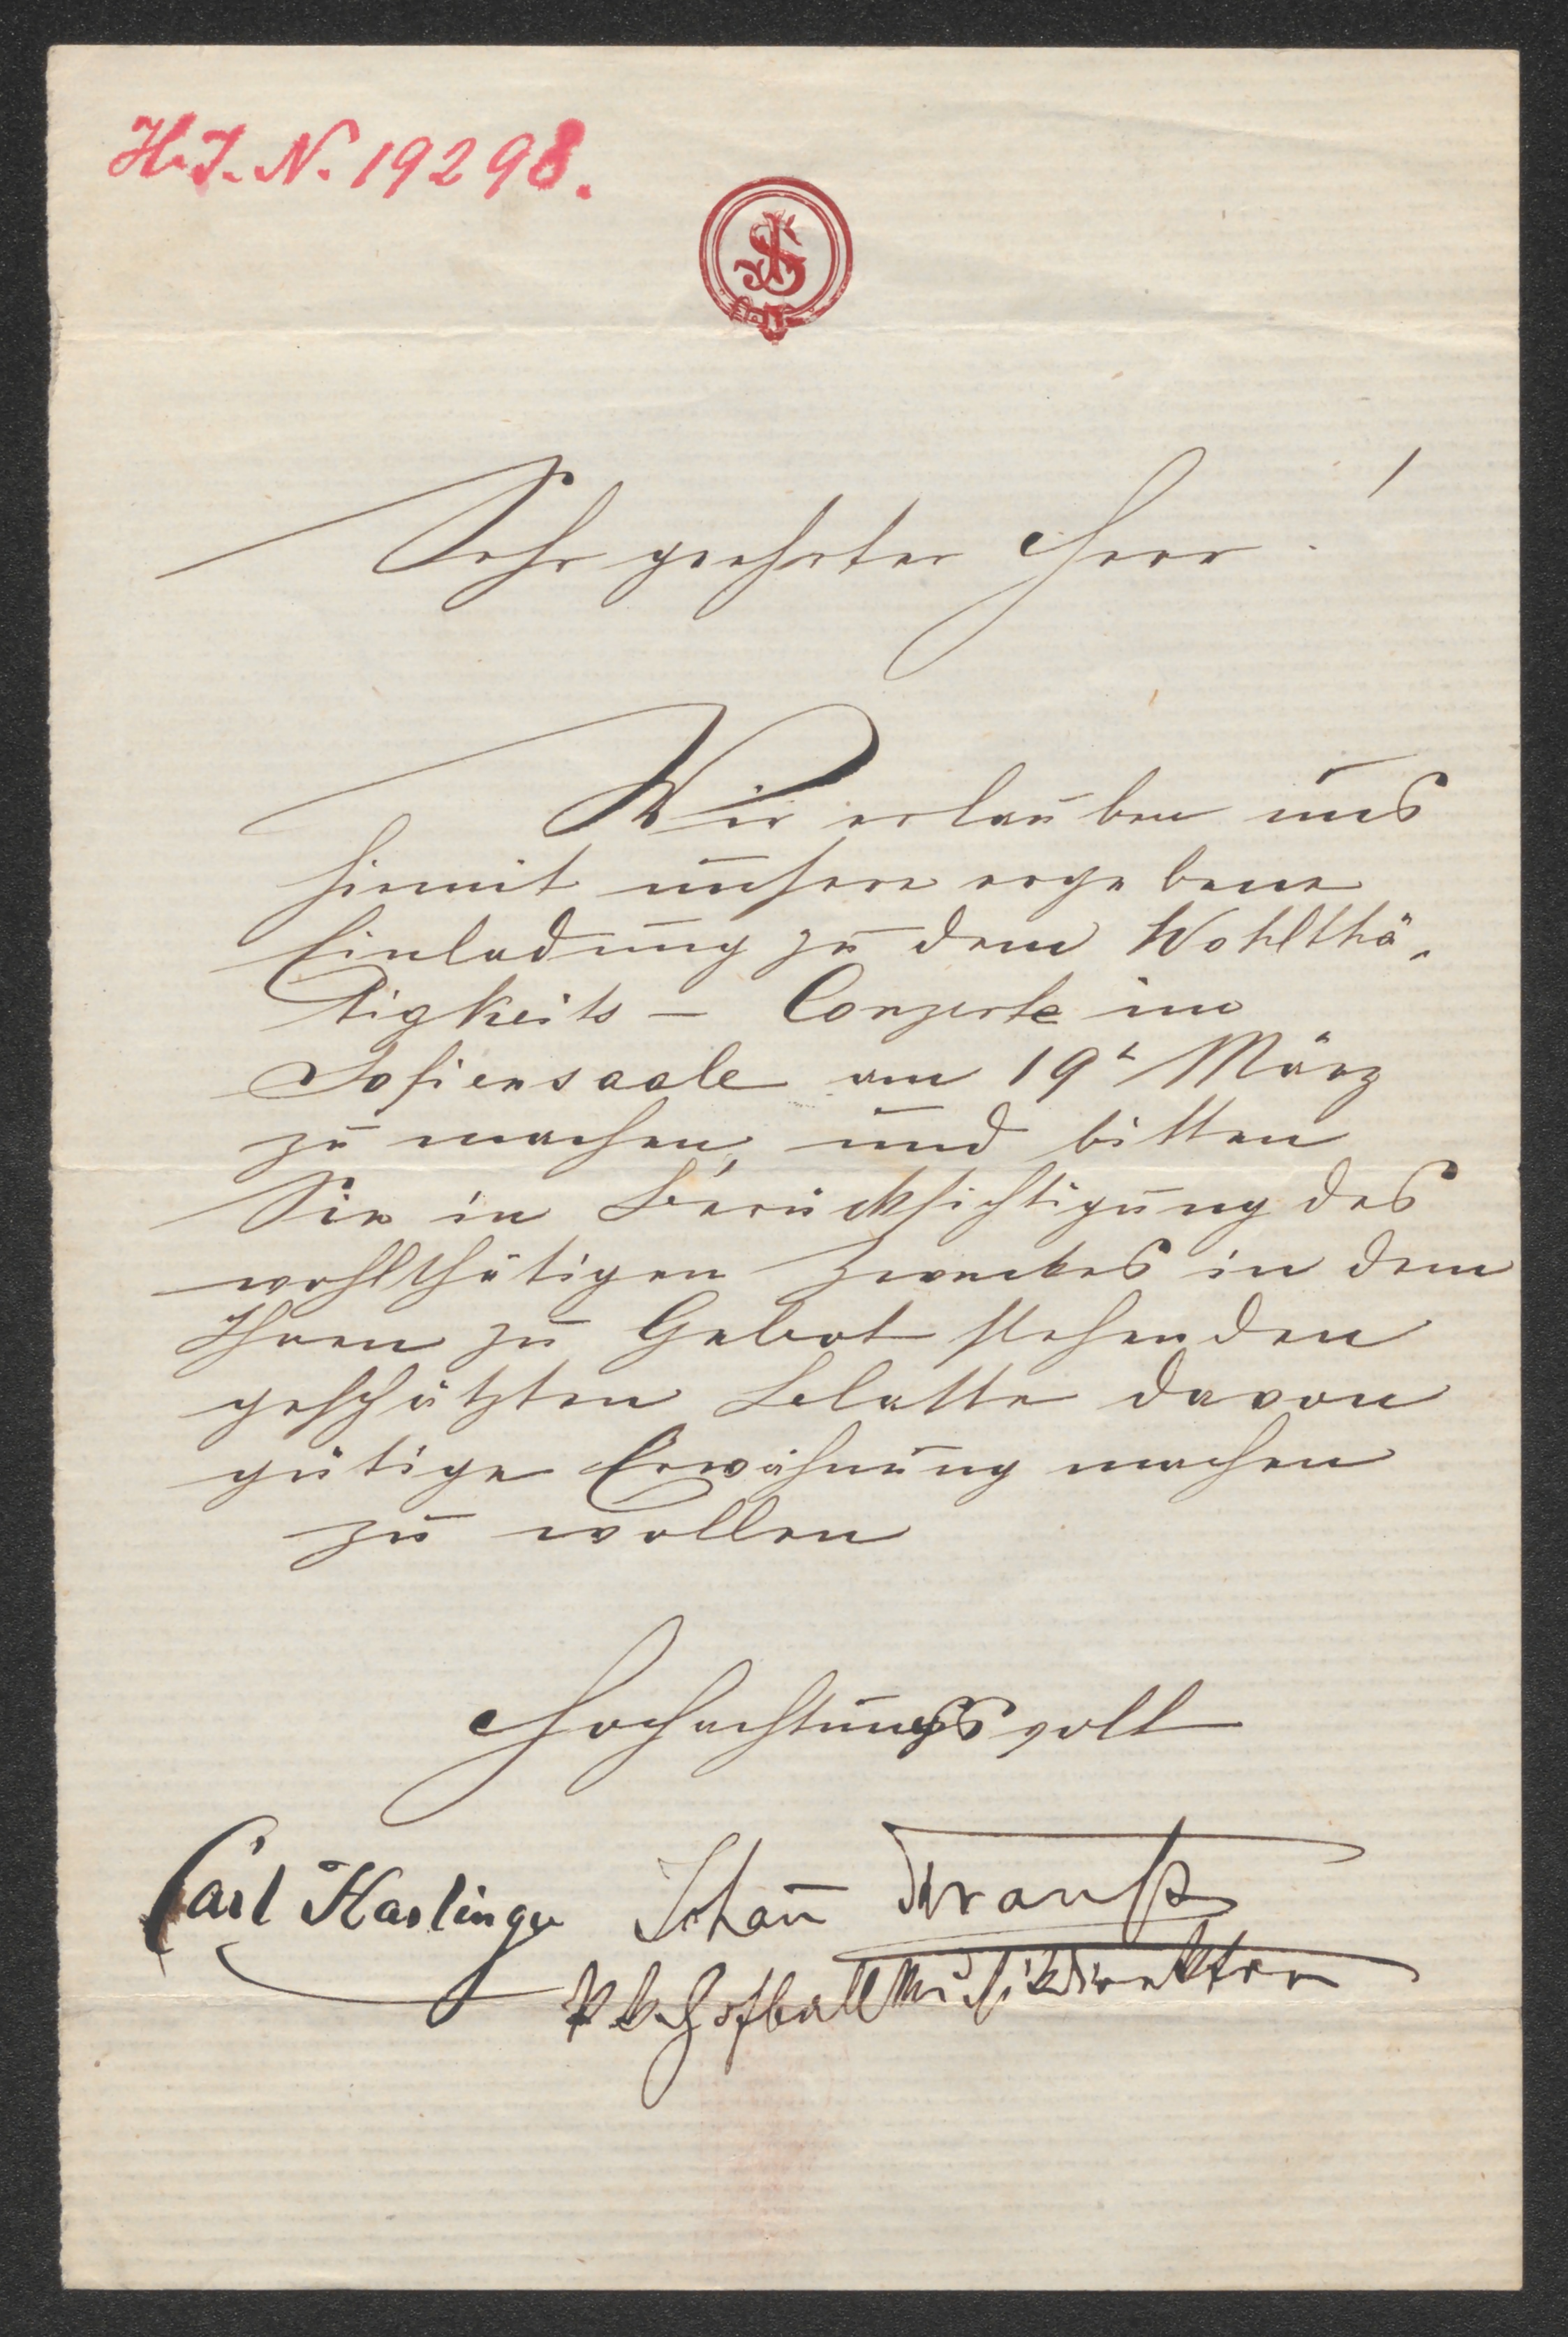 H.I.N. 19298.
JS
Sehr geehrter Herr!
Wir erlauben uns
hiemit unsere ergebene
Einladung zu dem Wohlthä„
tigkeits – Conzerte im
Sofiensaale am 19t März
zu machen, und bitten
Sie in Berücksichtigung des
wohlthätigen Zweckes in dem
Ihnen zu Gebot stehenden
geschätzten Blatte davon
gütige Erwähnung machen
zu wollen
Hochachtungsvoll
Carl Haslinger Johann Strauß
k k Hofball Musikdirektor